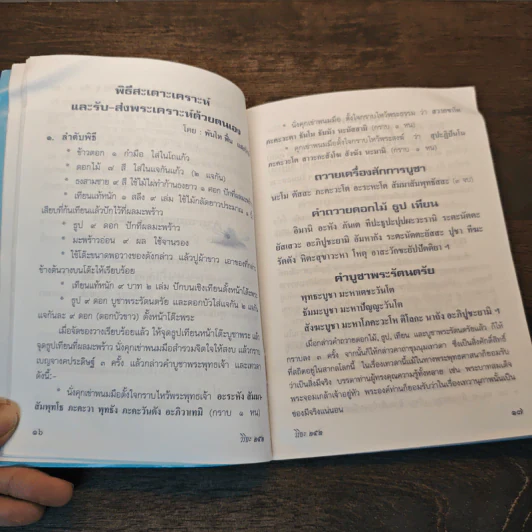 พิธีสะเดาะเคราะห์
และรับ-ส่งพระเคราะห์ด้วยตนเอง
โดย : พันโท
๑. ลำดับพิธี
* ข้าวตอก ๑ กำมือ ใส่ในโถแก้ว
* ดอกไม้ ๗ สี ใส่ในแจกันแก้ว (๒ แจกัน)
* ธงสามชาย ๙ สี ใช้ไม้ไผ่ทำก้านธงยาว ๑ ศอก ปักที่ผลมะพร้าว
* เทียนแท้หนัก ๑ สลึง ๙ เล่ม ใช้ไม้กลัดยาวประมาณ
เสียบที่ก้นเทียนแล้วปักไว้ที่ผลมะพร้าว
* ธูป ๙ ดอก ปักที่ผลมะพร้าว
* มะพร้าวอ่อน ๙ ผล ใช้จานรอง
* ใช้โต๊ะขนาดพอวางของดังกล่าว แล้วปูผ้าขาว เอาของที่กล่าว
ข้างต้นวางบนโต๊ะให้เรียบร้อย
* เทียนแท้หนัก ๙ บาท ๒ เล่ม ปักบนเชิงเทียนตั้งหน้าโต๊ะพระ
* ธูป ๙ ดอก บูชาพระรัตนตรัย และดอกบัวใส่แจกัน ๒ แจกัน
แจกันละ ๙ ดอก (ดอกบัวขาว) ตั้งหน้าโต๊ะพระ
เมื่อจัดของวางเรียบร้อยแล้ว ให้จุดธูปเทียนหน้าโต๊ะบูชาพระ แล้ว
จุดธูปเทียนที่ผลมะพร้าว นั่งคุกเข่าพนมมือสำรวมจิตใจให้สงบ แล้วกราบ
เบญจางคประดิษฐ์ ๓ ครั้ง แล้วกล่าวคำบูชาพระพุทธเจ้า และเทวดา
ดังนี้:-
* นั่งคุกเข่าพนมมือตั้งใจกราบไหว้พระพุทธเจ้า อะระหัง สัมมา
สัมพุทโธ ภะคะวา พุทธัง ภะคะวันตัง อะภิวาเทมิ (กราบ ๑ หน)
๑๖
* นั่งคุกเข่าพนมมือ ตั้งใจกราบไหว้พระธรรม ว่า สวากขาโต
ภะคะวะตา ธัมโม ธัมมัง นะมัสสามิ (กราบ ๑ หน)
* คุกเข่าพนมมือตั้งใจกราบไหว้พระสงฆ์ ว่า สุปะฏิปันโน
ภะคะวะโต สาวะกะสังโฆ สังฆัง นะมามิ (กราบ ๑ หน)
ถวายเครื่องสักการบูชา
นะโม ตัสสะ ภะคะวะโต อะระหะโต สัมมาสัมพุทธัสสะ (๓ หน)
คำถวายดอกไม้ ธูป เทียน
อิมานิ อะหัง ภันเต ทีปะธูปะปุปผะวะรานิ ระตะนัตตะ
ยัสเสวะ อะภิปูชะยามิ อัมหากัง ระตะนัตตะยัสสะ ปูชา ทีฆะ
รัตตัง หิตะสุขาวะหา โหตุ อาสะวักขะยัปปัตติยา ฯ
คำบูชาพระรัตนตรัย
พุทธะบูชา มะหาเตชะวันโต
ธัมมะบูชา มะหาปัญญะวันโต
สังฆะบูชา มะหาโภคะวะโห ติโลกะ นาถัง อะภิปูชะยามิ ฯ
เมื่อกล่าวคำถวายดอกไม้, ธูป, เทียน และบูชาพระรัตนตรัยแล้ว ก็ให้
กราบลง ๓ ครั้ง จากนั้นก็ให้กล่าวคาถาชุมนุมเทวดา ซึ่งเป็นสิ่งศักดิ์สิทธิ์
ที่สถิตอยู่ในสากลโลกนี้ ในเรื่องเทวดานี้มีในทางพระพุทธศาสนาก็ยอมรับ
ว่าเป็นสิ่งมีจริง บรรดาท่านผู้ทรงคุณความรู้ทั้งหลาย เช่น พระบาทสมเด็จ
พระจอมเกล้าเจ้าอยู่หัว พระองค์ท่านก็ยอมรับว่าในเรื่องเทวานุภาพนั้นเป็น
ของมีจริงแน่นอน
๑๗